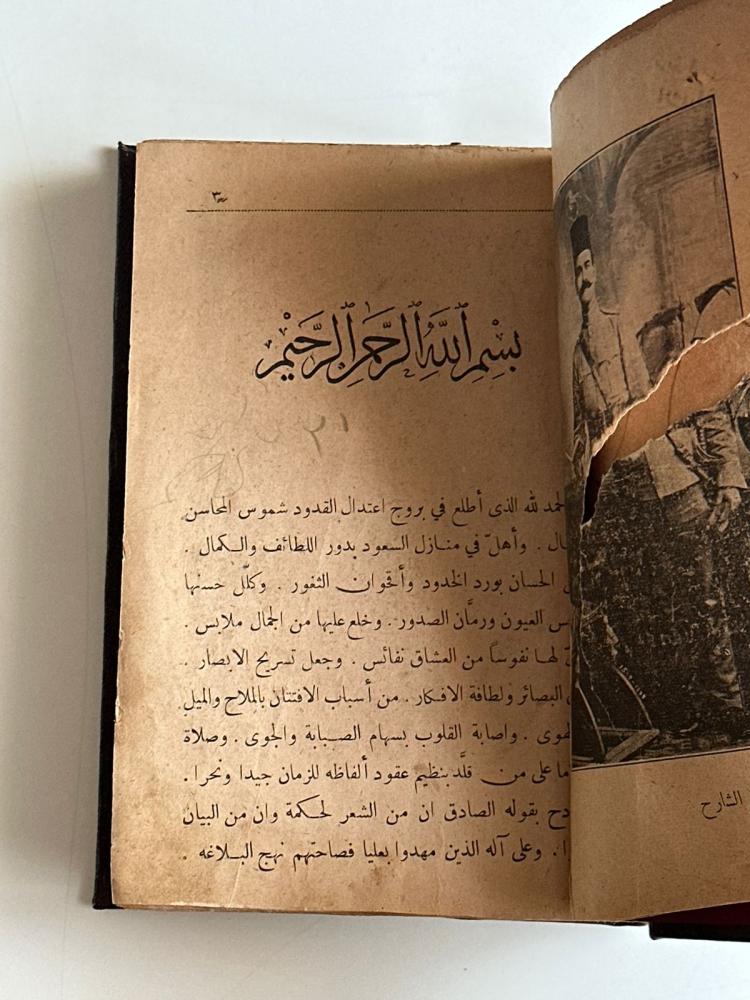 ٣
بِسْمِ اللَّهِ الرَّحْمَنِ الرَّحِيمِ
الحمد لله الذى أطلع في بروج اعتدال القدود شموس المحاسن
وأهلّ في منازل السعود بدور اللطائف والكمال .
الحسان بورد الخدود وأقحوان الثغور . وكلّل حسنها
العيون ورمّان الصدور . وخلع عليها من الجمال ملابس .
لها نفوساً من العشاق نفائس . وجعل تسريح الابصار .
البصائر ولطافة الافكار . من أسباب الافتتان بالملاح والميل
واصابة القلوب بسهام الصبابة والجوى . وصلاة
على من قلّد بنظيم عقود ألفاظه للزمان جيدا ونحرا .
بقوله الصادق ان من الشعر لحكمة وان من البيان
وعلى آله الذين مهدوا بعليا فصاحتهم نهج البلاغه .
الشارح